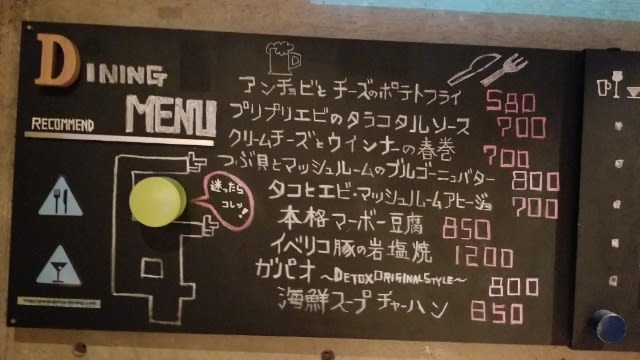 DINING
MENU
RECOMMEND
迷ったら
コレッ!
アンチョビとチーズのポテトフライ 580
プリプリエビのタラコタルソース 700
クリームチーズとウインナーの春巻 700
つぶ貝とマッシュルームのブルゴーニュバター 800
タコとエビ・マッシュルームアヒージョ 700
本格マーボー豆腐 850
イベリコ豚の岩塩焼 1200
ガパオ ～DETOX ORIGINAL STYLE～ 800
海鮮スープチャーハン 850